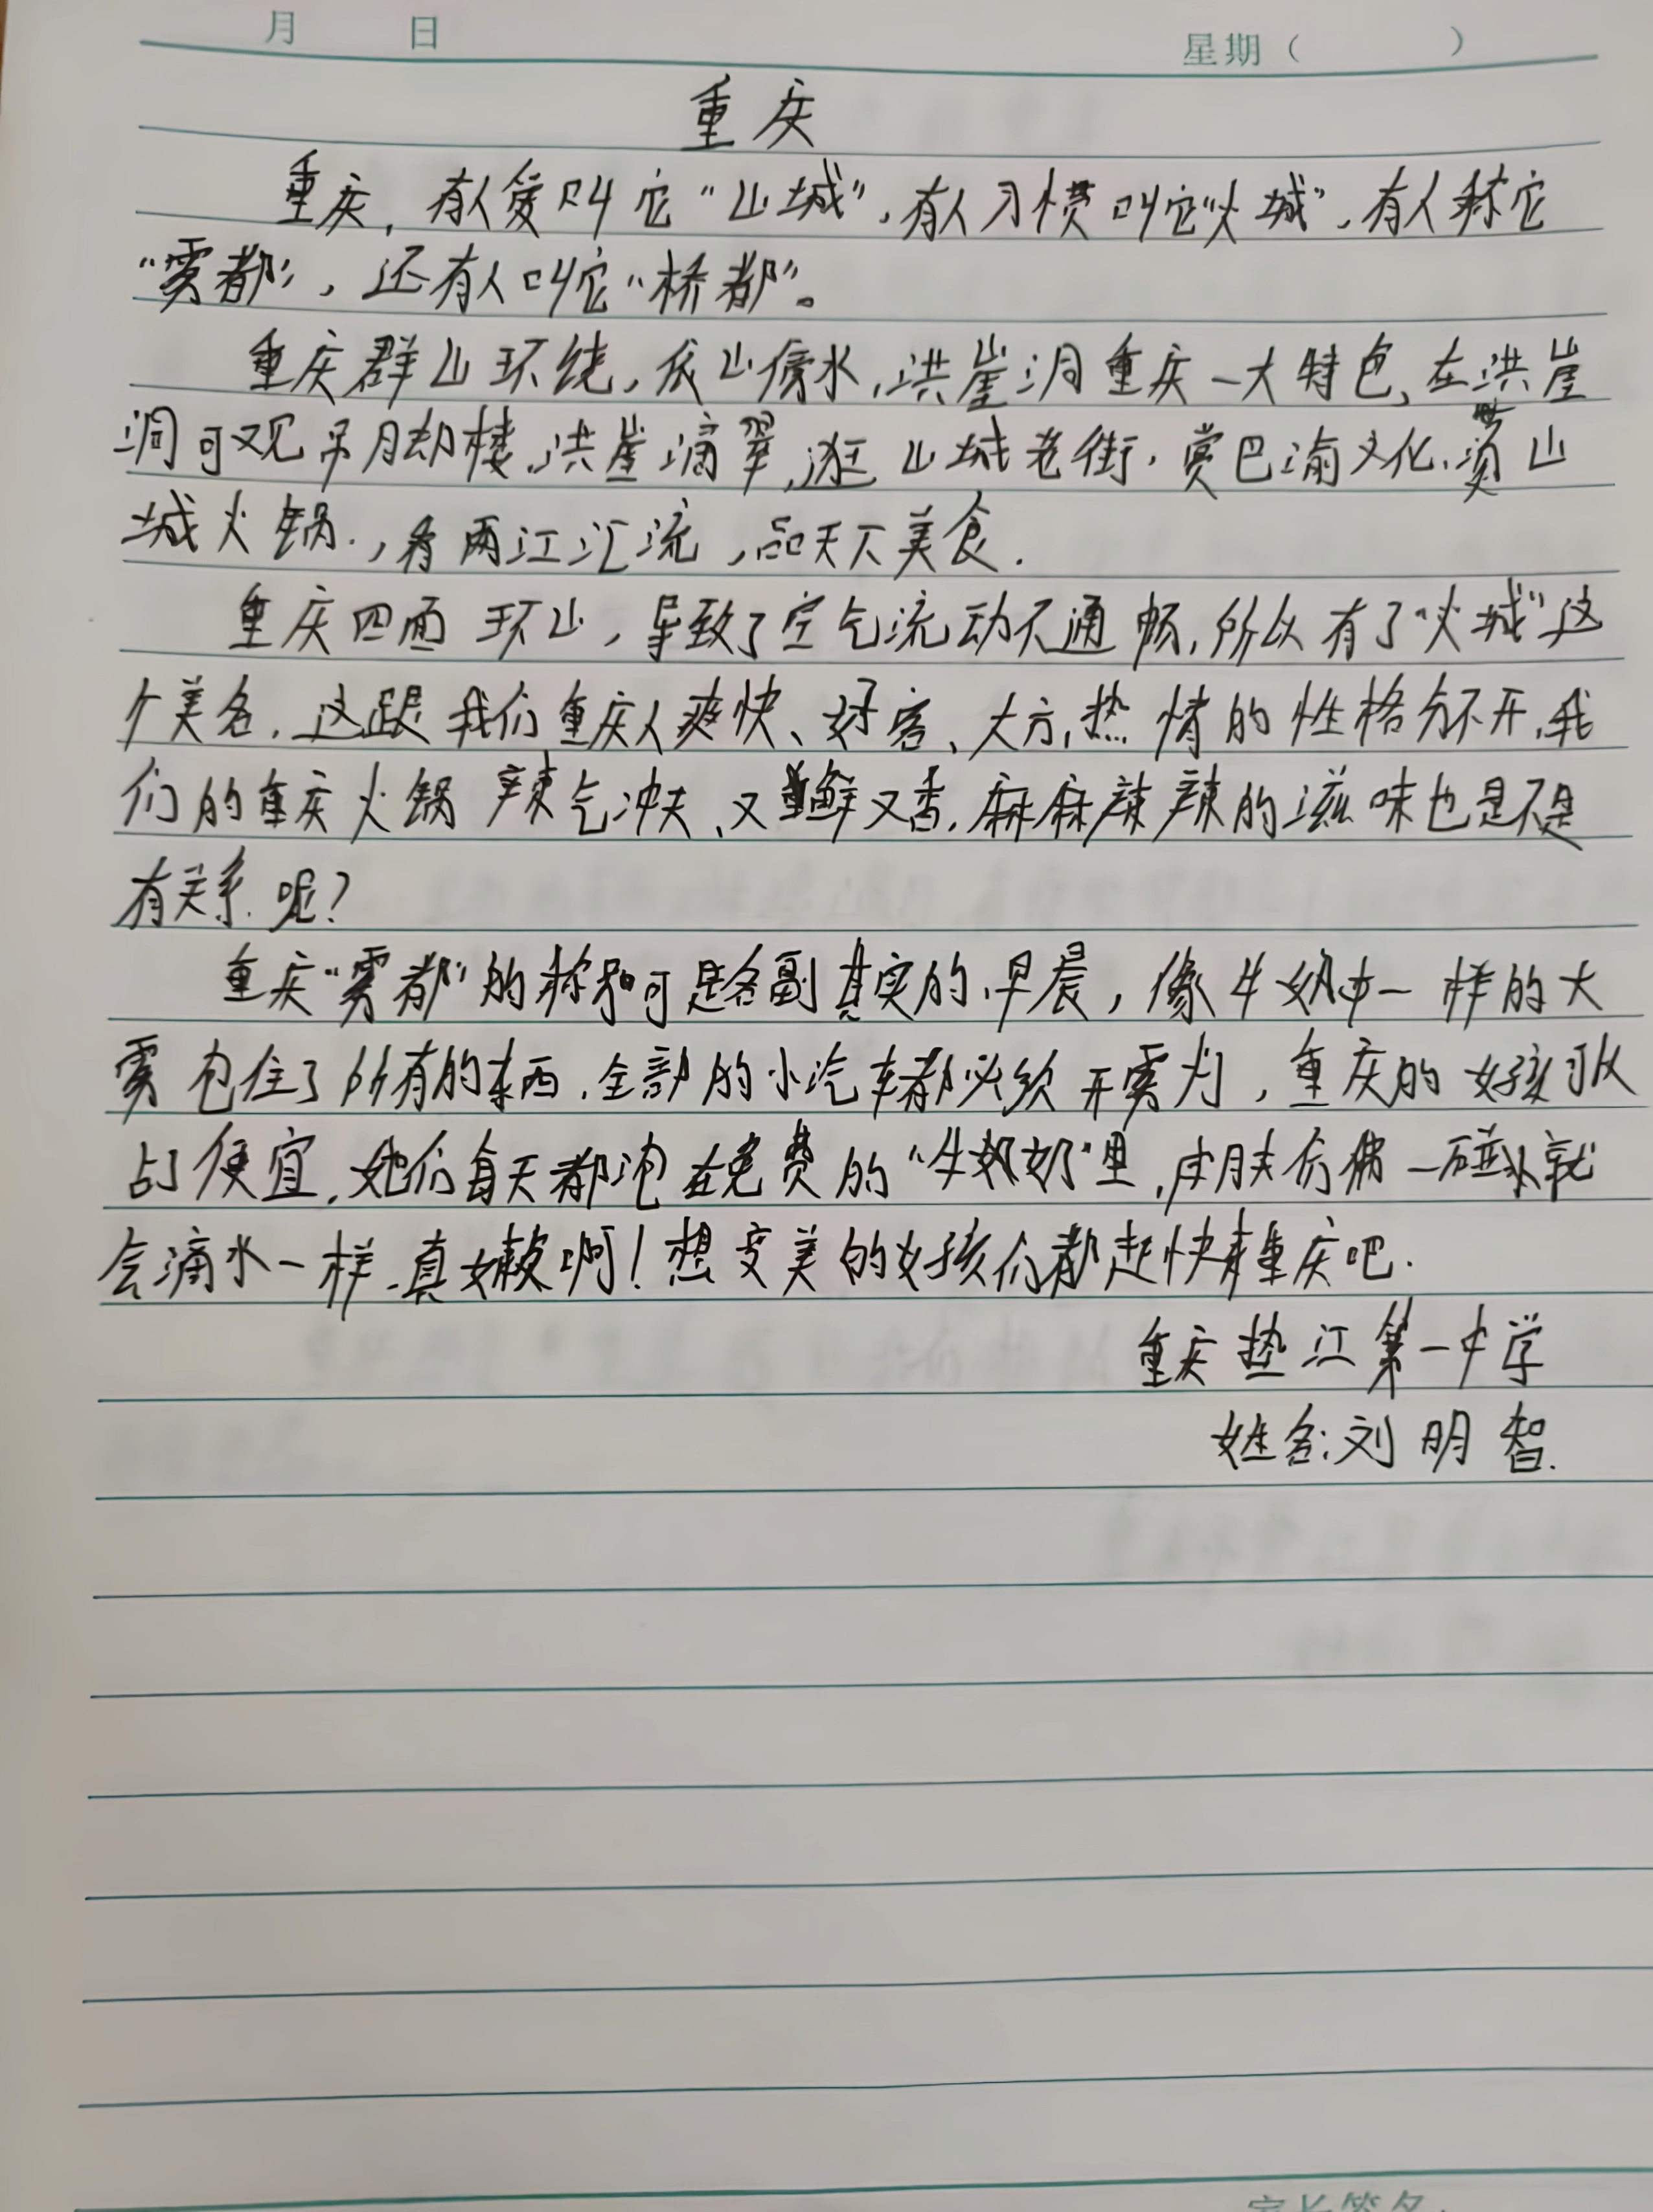 月 日 星期（ ）
重庆
重庆，有人爱叫它“山城”，有人习惯叫它“火城”，有人称它
“雾都”，还有人叫它“桥都”。
重庆群山环绕，依山傍水，洪崖洞重庆一大特色，在洪崖
洞可观吊脚楼，洪崖滴翠，逛山城老街，赏巴渝文化，烫山
城火锅，看两江汇流，品天下美食.
重庆四面环山，导致了空气流动不通畅，所以有了“火城”这
个美名，这跟我们重庆人爽快、好客、大方，热情的性格分不开，我
们的重庆火锅辣气冲天、又鲜又香，麻麻辣辣的滋味也是不是
有关系呢？
重庆“雾都”的称号可是名副其实的，早晨，像牛奶一样的大
雾包住了所有的东西，全部的小汽车都必须开雾灯，重庆的女孩可以
占了便宜，她们每天都泡在免费的“牛奶”里，皮肤仿佛一碰水就
会滴水一样，真女啊！想变美的女孩们都赶快来重庆吧.
重庆垫江第一中学
姓名：刘明智.
家长签名：